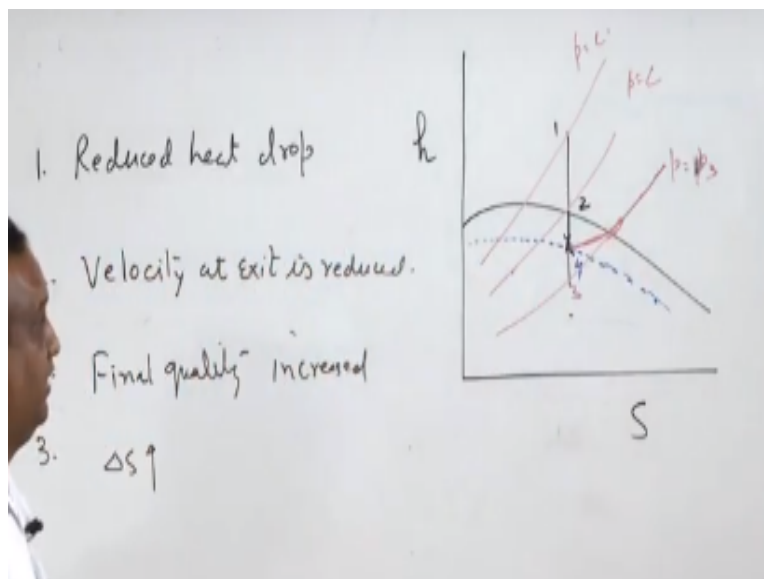 1. Reduced heat drop
. Velocity at exit is reduced.
Final quality increased
3. ΔS↑
h
p=c
p=c
p=p₃
1
2
4
3
S